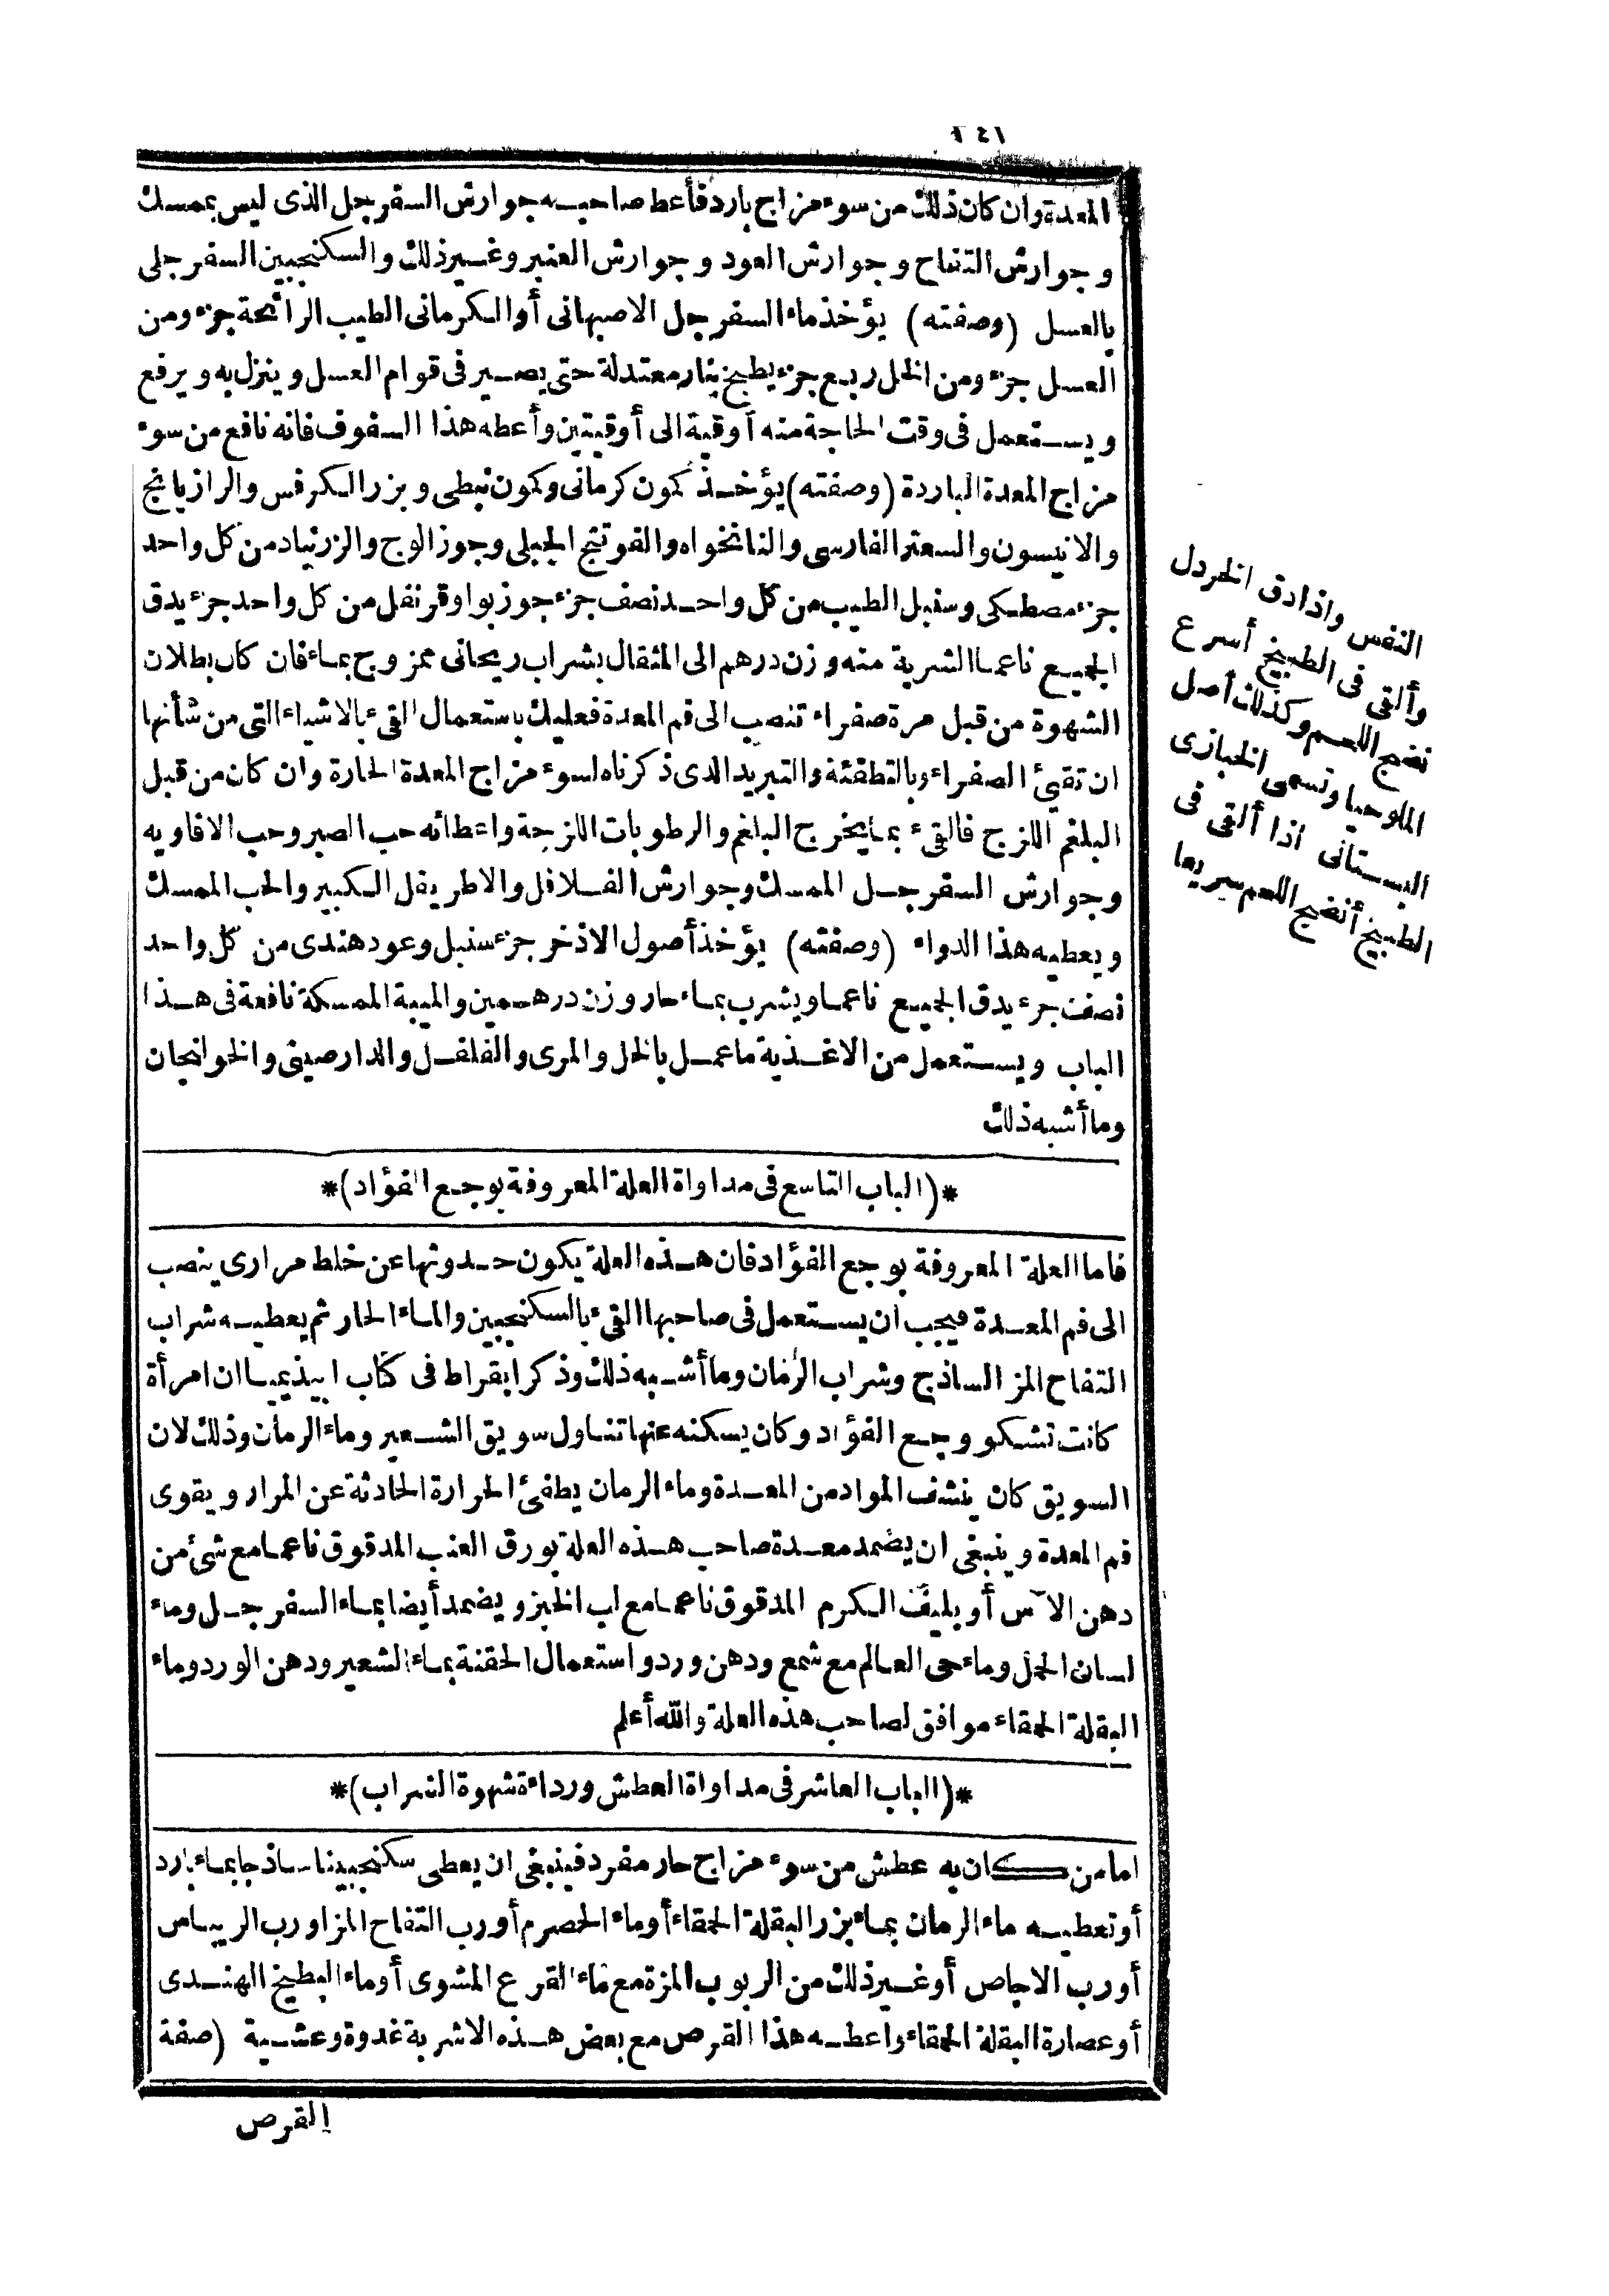 المعدة وان كان ذلك من سوء مزاج بارد فأعط صاحبه جوارش السفرجل الذى ليس بممسك
وجوارش التفاح وجوارش العود وجوارش العنبر وغير ذلك والسكنجبين السفرجلى
بالعسل (وصفته) يؤخذ ماء السفرجل الاصبهانى أو الكرمانى الطيب الرائحة جزء ومن
العسل جزء ومن الخل ربع جزء يطبخ بنار معتدلة حتى يصير فى قوام العسل وينزل به ويرفع
ويستعمل فى وقت الحاجة منه أوقية الى أوقيتين وأعطه هذا السفوف فانه نافع من سوء
مزاج المعدة الباردة (وصفته) يؤخذ كمون كرمانى وكمون نبطى وبزر الكرفس والرازيانج
والانيسون والسعتر الفارسى والنانخواه والفوتنج الجبلى وجوز الوج والزرنباد من كل واحد
جزء مصطكى وسنبل الطيب من كل واحد نصف جزء جوزبوا وقرنفل من كل واحد جزء يدق
الجميع ناعما الشربة منه وزن درهم الى المثقال بشراب ريحانى ممزوج بماء فان كان بطلان
الشهوة من قبل مرة صفراء تنصب الى فم المعدة فعليك باستعمال القىء بالاشياء التى من شأنها
ان تقيئ الصفراء وبالتطفئة والتبريد الذى ذكرناه لسوء مزاج المعدة الحارة وان كان من قبل
البلغم اللزج فالقىء بما يخرج البلغم والرطوبات اللزجة واعطائه حب الصبر وحب الافاويه
وجوارش السفرجل الممسك وجوارش الفلافل والاطريفل الكبير والحب الممسك
ويعطيه هذا الدواء (وصفته) يؤخذ أصول الاذخر جزء سنبل وعود هندى من كل واحد
نصف جزء يدق الجميع ناعما ويشرب بماء حار وزن درهمين والميبة الممسكة نافعة فى هذا
الباب ويستعمل من الاغذية ما عمل بالخل والمرى والفلفل والدارصينى والخوانجان
وما أشبه ذلك
*(الباب التاسع فى مداواة العلة المعروفة بوجع الفؤاد)*
فاما العلة المعروفة بوجع الفؤاد فان هذه العلة يكون حدوثها عن خلط مرارى ينصب
الى فم المعدة فيجب ان يستعمل فى صاحبها القىء بالسكنجبين والماء الحار ثم يعطيه شراب
التفاح المز الساذج وشراب الرمان وما أشبه ذلك وذكر ابقراط فى كتاب ابيذيميا ان امرأة
كانت تشكو وجع الفؤاد وكان يسكنه عنها تناول سويق الشعير وماء الرمان وذلك لان
السويق كان ينشف المواد من المعدة وماء الرمان يطفئ الحرارة الحادثة عن المرار ويقوى
فم المعدة وينبغى ان يضمد معدة صاحب هذه العلة بورق العنب المدقوق ناعما مع شئ من
دهن الآس أو بليف الكرم المدقوق ناعما مع لب الخبز ويضمد أيضا بماء السفرجل وماء
لسان الحمل وماء حى العالم مع شمع ودهن ورد واستعمال الحقنة بماء الشعير ودهن الورد وماء
البقلة الحمقاء موافق لصاحب هذه العلة والله أعلم
*(الباب العاشر فى مداواة العطش ورداءة شهوة الشراب)*
اما من كان به عطش من سوء مزاج حار مفرد فينبغى ان يعطى سكنجبينا ساذجا بماء بارد
أو تعطيه ماء الرمان بماء بزر البقلة الحمقاء أو ماء الحصرم أو رب التفاح المز او رب الريباس
أو رب الاجاص أو غير ذلك من الربوب المزة مع ماء القرع المشوى أو ماء البطيخ الهندى
أو عصارة البقلة الحمقاء واعطه هذا القرص مع بعض هذه الاشربة غدوة وعشية (صفة
القرص
النفس واذا دق الخردل
وألقى فى الطبيخ أسرع
نضج اللحم وكذلك أصل
الملوحيا وتسمى الخبازى
البستانى اذا ألقى فى
الطبيخ أنضج اللحم سريعا